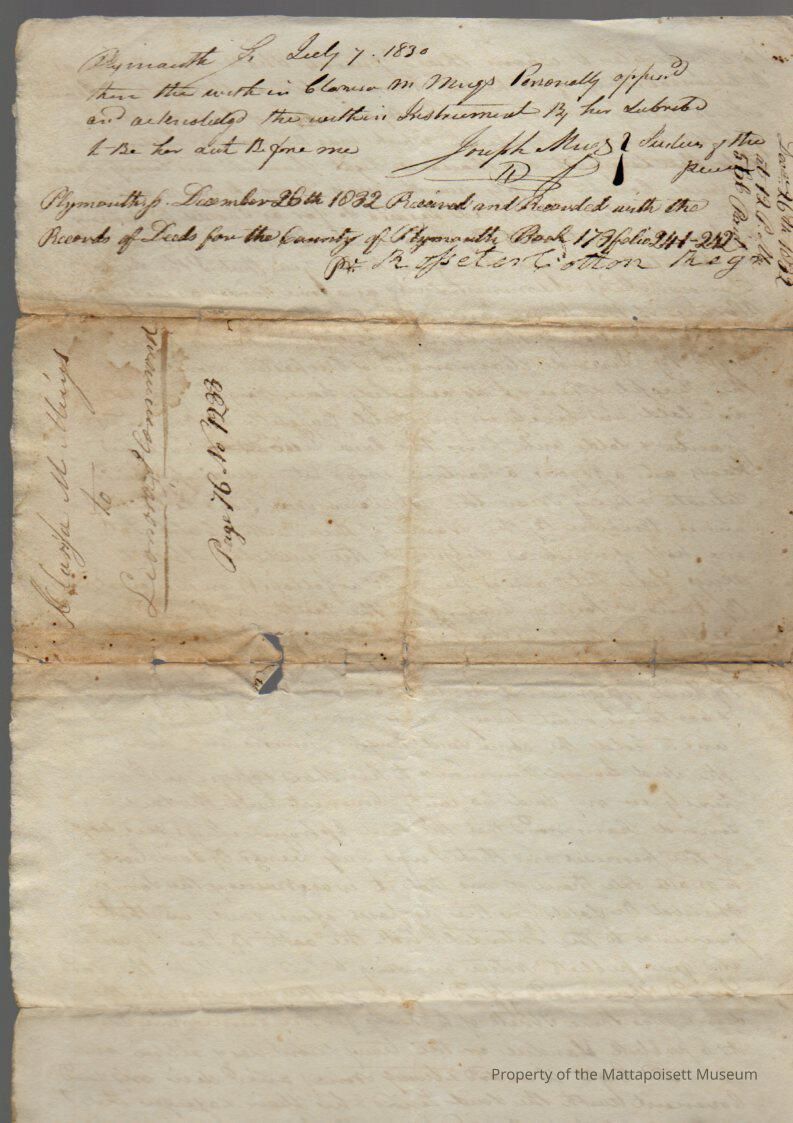 Plymouth Ss July 7. 1830
then the with in Clarisa M Meigs Personally appeard
and acknoledgd the within Instrument By her Subscribd
to Be her act Before me
Joseph Meigs Justice of the
peace
Plymouth ss. December 26th 1832 Received and Recorded with the
Records of Deeds for the County of Plymouth Book 173 folio 241-242
pr. Rosseter Cotton Regr
26th 1832
at 12
Clarisa M Meigs
to
Leonard Hammond
Page 76 No 1233
Property of the Mattapoisett Museum